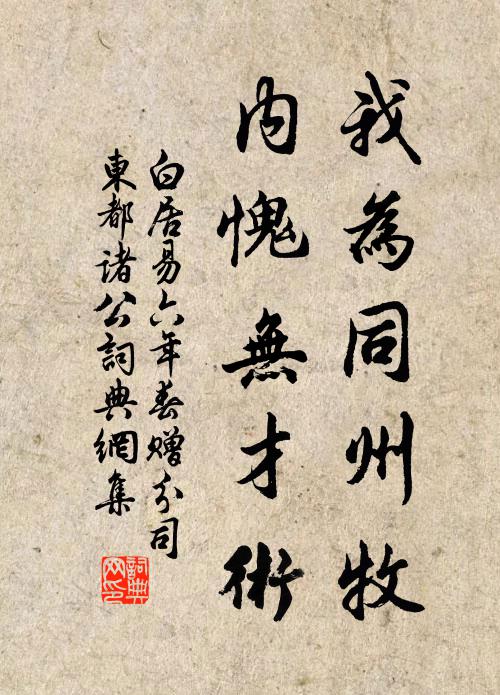 我為同州牧
内愧無才術
白居易六年春赠分司
東都诸公詞典網集
詞典网印